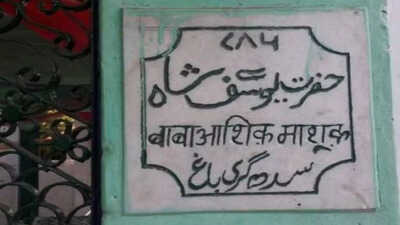 ۷۸۶
حضرت یوسف شاہ
बाबा आशिक़ माशूक़
سدہ گری باغ